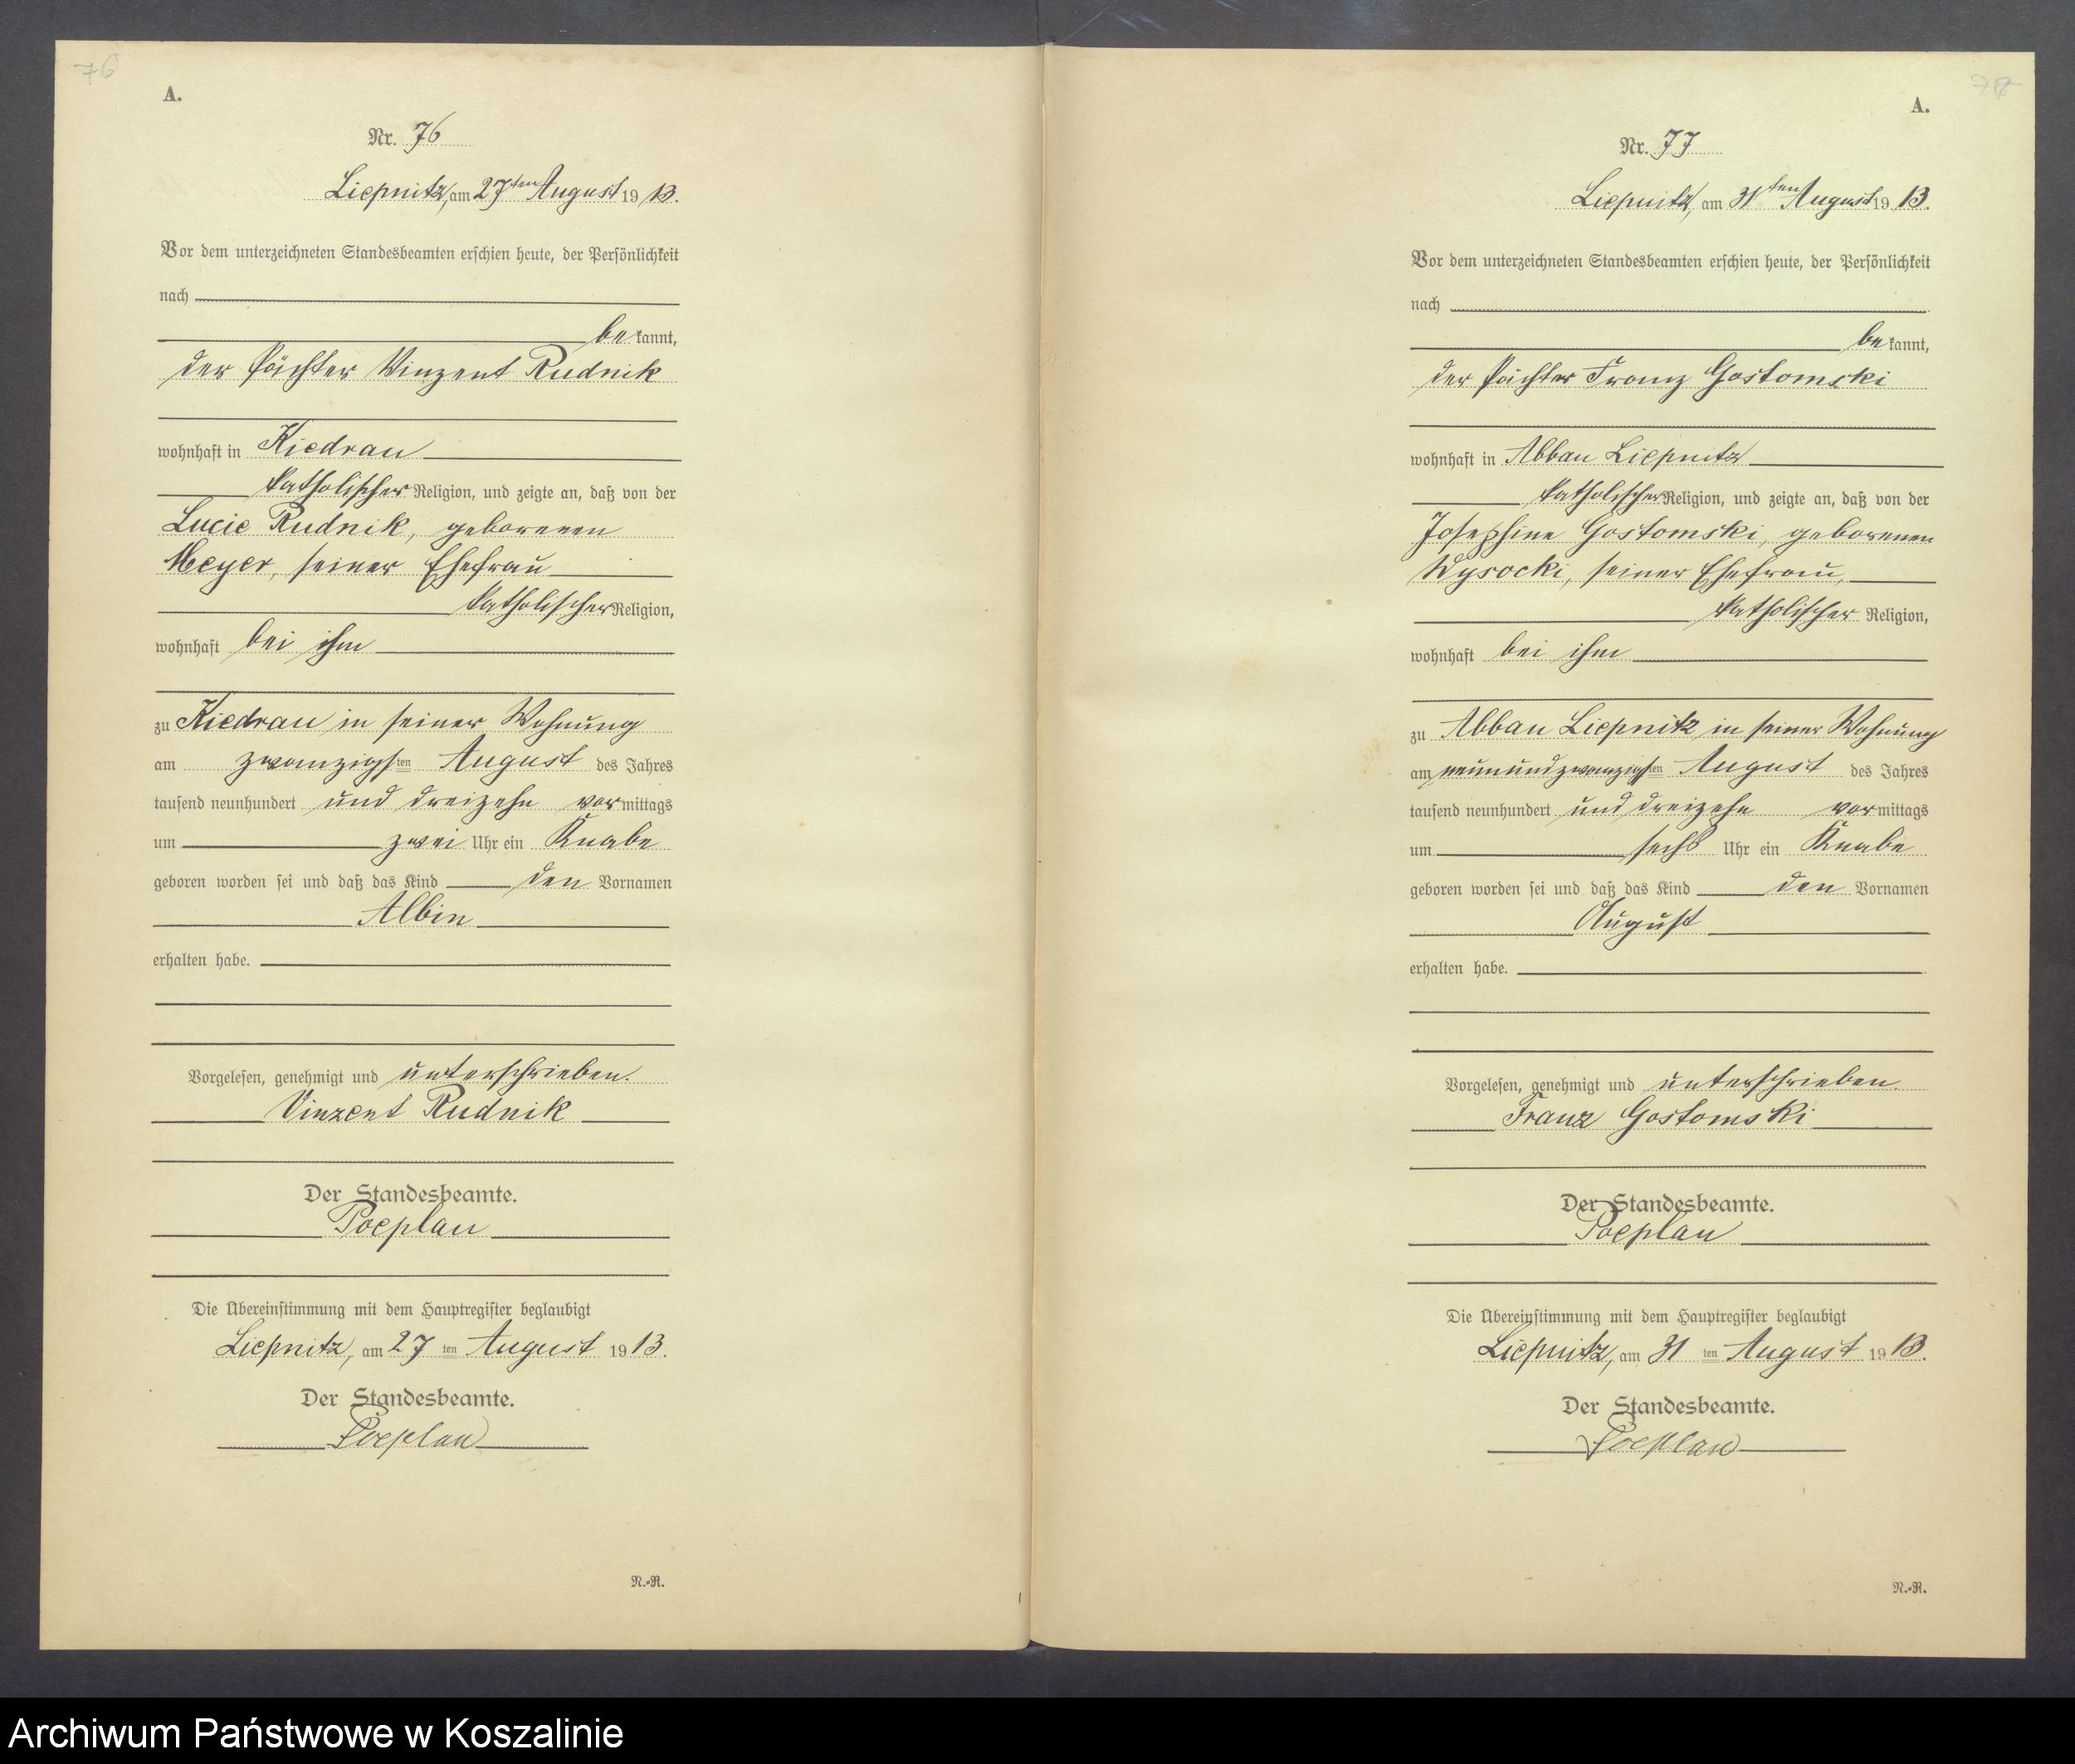 76
A.
Nr. 76
Liepnitz, am 27ten August 1913.
Vor dem unterzeichneten Standesbeamten erschien heute, der Persönlichkeit
nach
bekannt,
der Pächter Vinzent Rudnik
wohnhaft in Kiedrau
katholischer Religion, und zeigte an, daß von der
Lucie Rudnik, geborenen
Meyer, seiner Ehefrau
katholischer Religion,
wohnhaft bei ihm
zu Kiedrau in seiner Wohnung
am zwanzigsten August des Jahres
tausend neunhundert und dreizehn vormittags
um zwei Uhr ein Knabe
geboren worden sei und daß das Kind den Vornamen
Albin
erhalten habe.
Vorgelesen, genehmigt und unterschrieben.
Vinzent Rudnik
Der Standesbeamte.
Poeplau
Die Übereinstimmung mit dem Hauptregister beglaubigt
Liepnitz, am 27ten August 1913.
Der Standesbeamte.
Poeplau
N.-R.
A.
Nr. 77
Liepnitz, am 31ten August 1913.
Vor dem unterzeichneten Standesbeamten erschien heute, der Persönlichkeit
nach
bekannt,
der Pächter Franz Gostomski
wohnhaft in Abbau Liepnitz
katholischer Religion, und zeigte an, daß von der
Josephine Gostomski, geborenen
Wysocki, seiner Ehefrau,
katholischer Religion,
wohnhaft bei ihm
zu Abbau Liepnitz in seiner Wohnung
am neunundzwanzigsten August des Jahres
tausend neunhundert und dreizehn vormittags
um sechs Uhr ein Knabe
geboren worden sei und daß das Kind den Vornamen
August
erhalten habe.
Vorgelesen, genehmigt und unterschrieben.
Franz Gostomski
Der Standesbeamte.
Poeplau
Die Übereinstimmung mit dem Hauptregister beglaubigt
Liepnitz, am 31ten August 1913.
Der Standesbeamte.
Poeplau
N.-R.
Archiwum Państwowe w Koszalinie